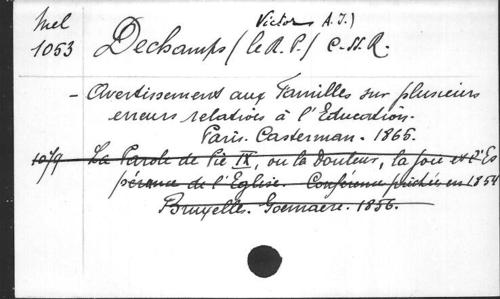 Mel
1053
Victor A. J.)
Dechamps (le R. P.) C.SS.R.
- Avertissement aux Familles sur plusieurs
erreurs relatives à l'Education.
Paris. Casterman. 1866.
1079 La Parole de Pie IX, ou la Douleur, la joie et l'Es
pérance de l'Eglise. Conférence prêchée en 1854
Bruxelles. Goemaere. 1856.